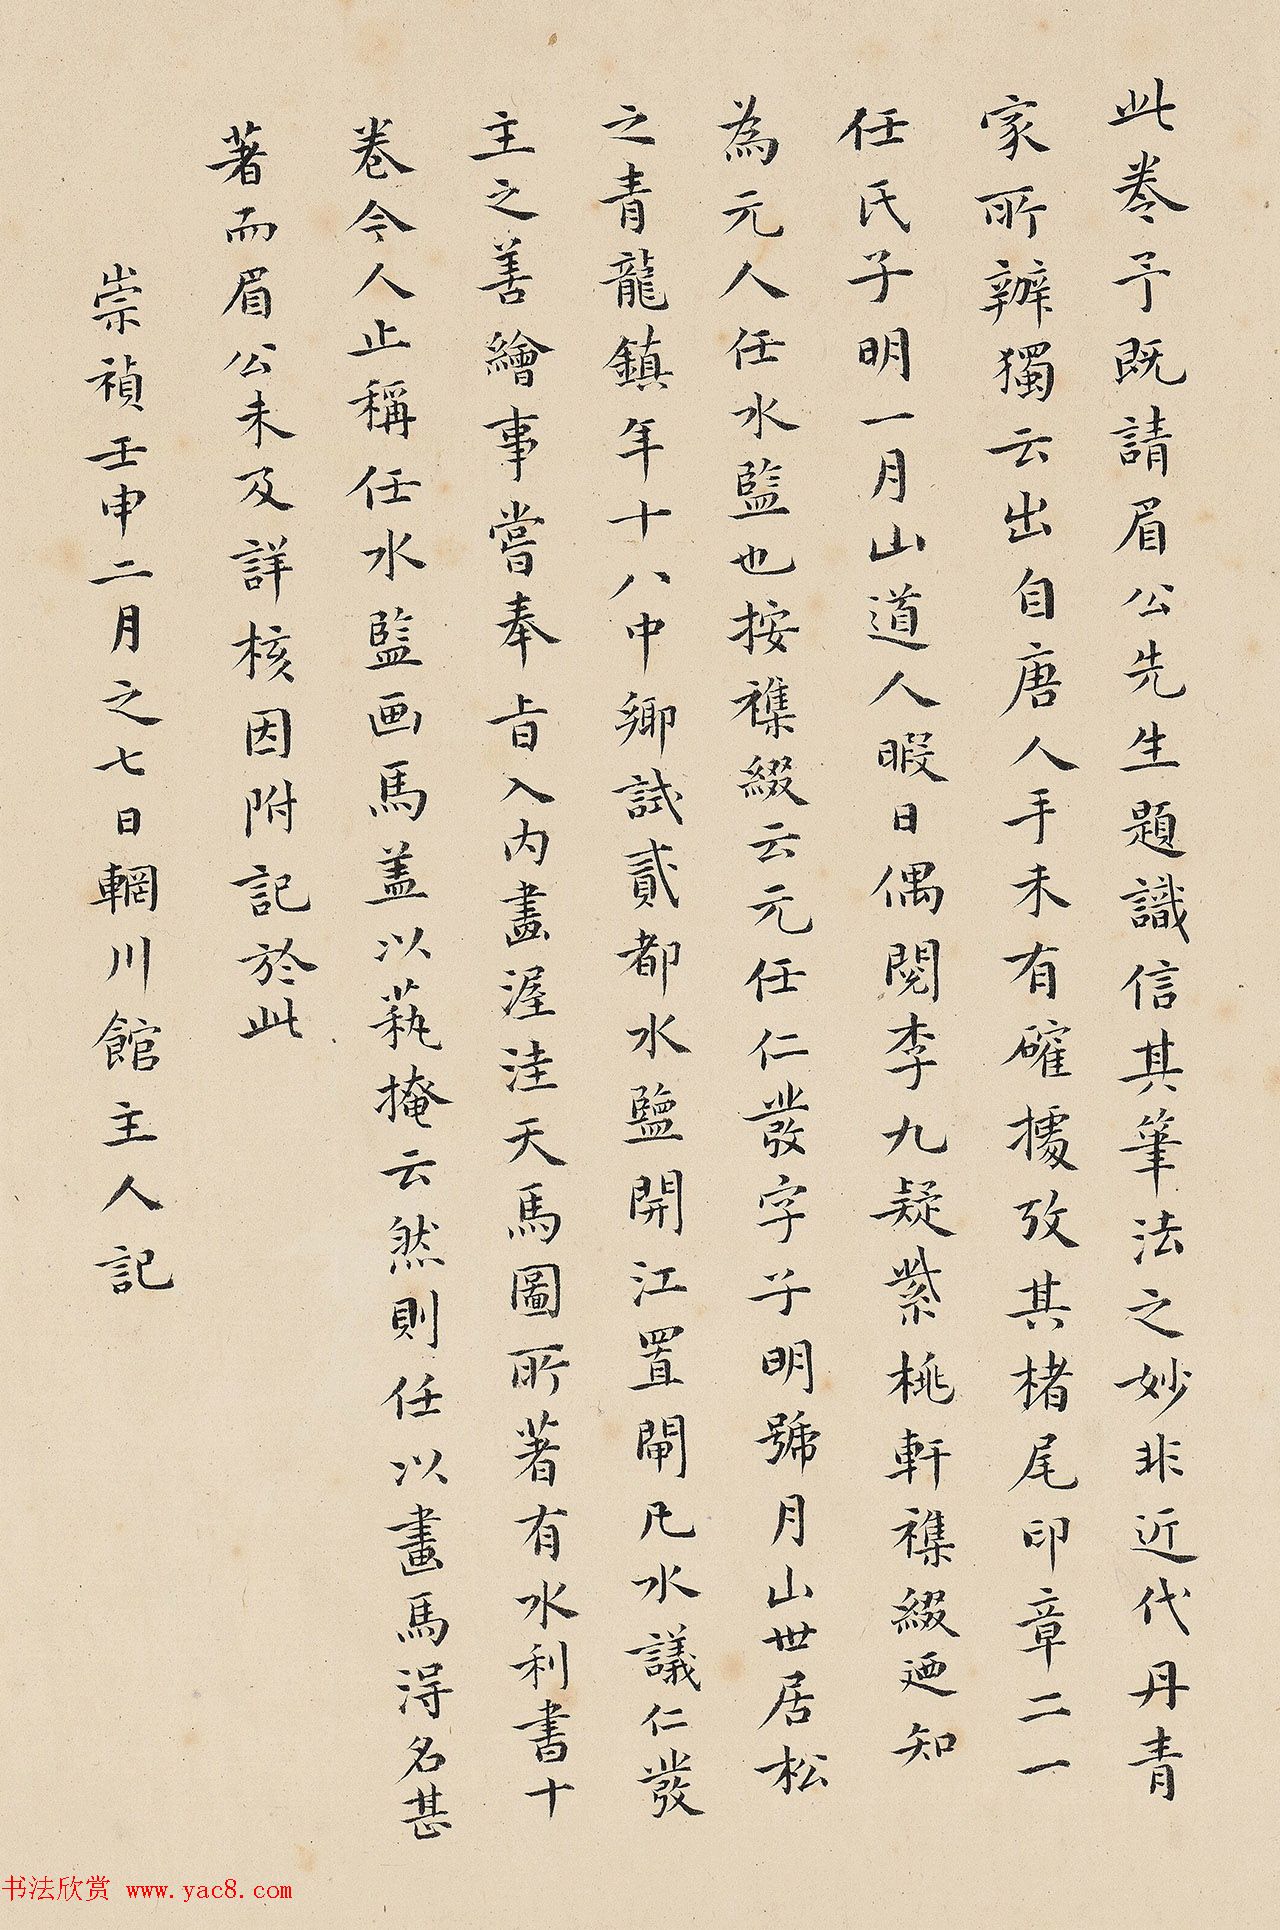 此卷予既請眉公先生題識信其筆法之妙非近代丹青
家所辦獨云出自唐人手未有確據攷其楮尾印章二一
任氏子明一月山道人暇日偶閱李九疑紫桃軒襍綴迺知
為元人任水監也按襍綴云元任仁發字子明號月山世居松
之青龍鎮年十八中鄉試貳都水鹽開江置閘凡水議仁發
主之善繪事嘗奉旨入內畫渥洼天馬圖所著有水利書十
卷今人止稱任水監画馬盖以蓺掩云然則任以畫馬淂名甚
著而眉公未及詳核因附記於此
崇禎壬申二月之七日輞川館主人記
书法欣赏 www.yac8.com